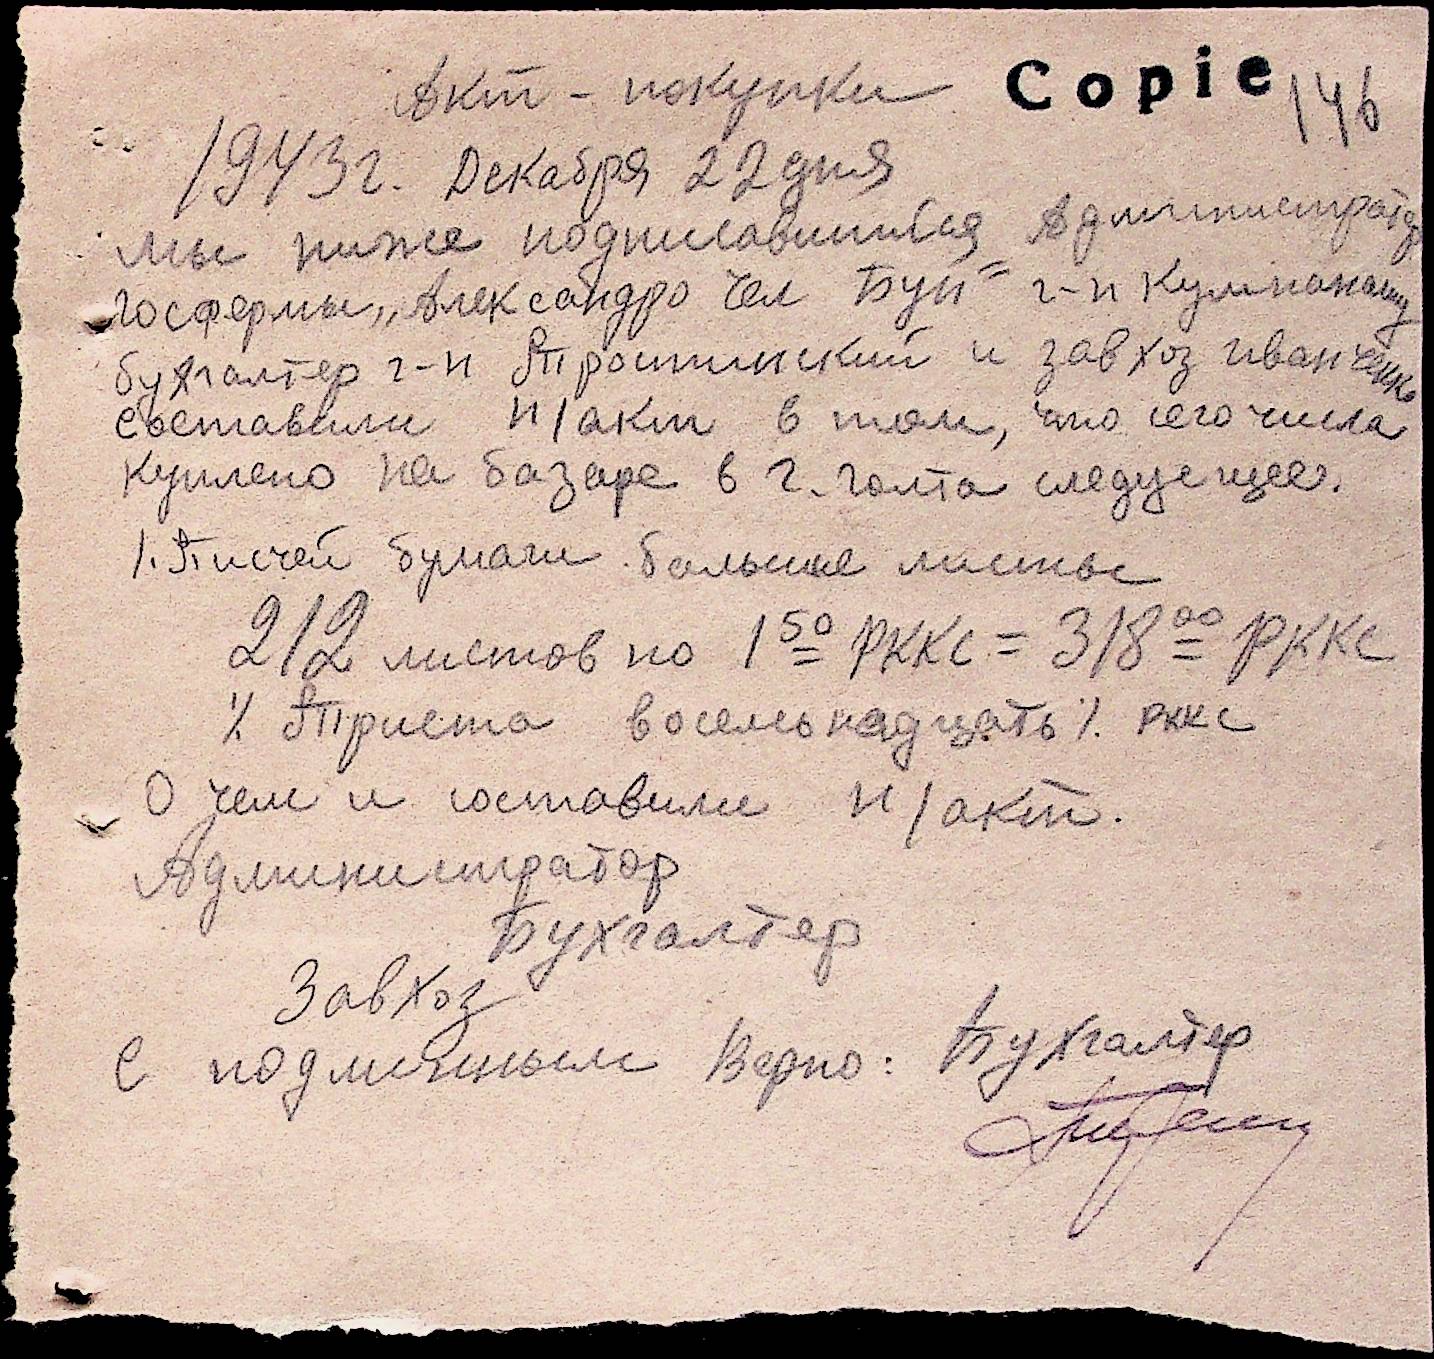 Акт - покупки Copie 146
1943 г. Декабря 22 дня
мы ниже подписавшийся Администратор
госфермы „Александро Чел Бун" г-н
бухгалтер г-н и завхоз Иванченко
составили н/акт в том, что сего числа
куплено на базаре в г. Голта следуещее.
1. Писчей бумаги большие листы
212 листов по 1 50 РККС = 318 00 РККС
% Триста восемьнадцать % РККС
О чем и составили н/акт.
Администратор
Бухгалтер
Завхоз
С подлинным Верно: Бухгалтер